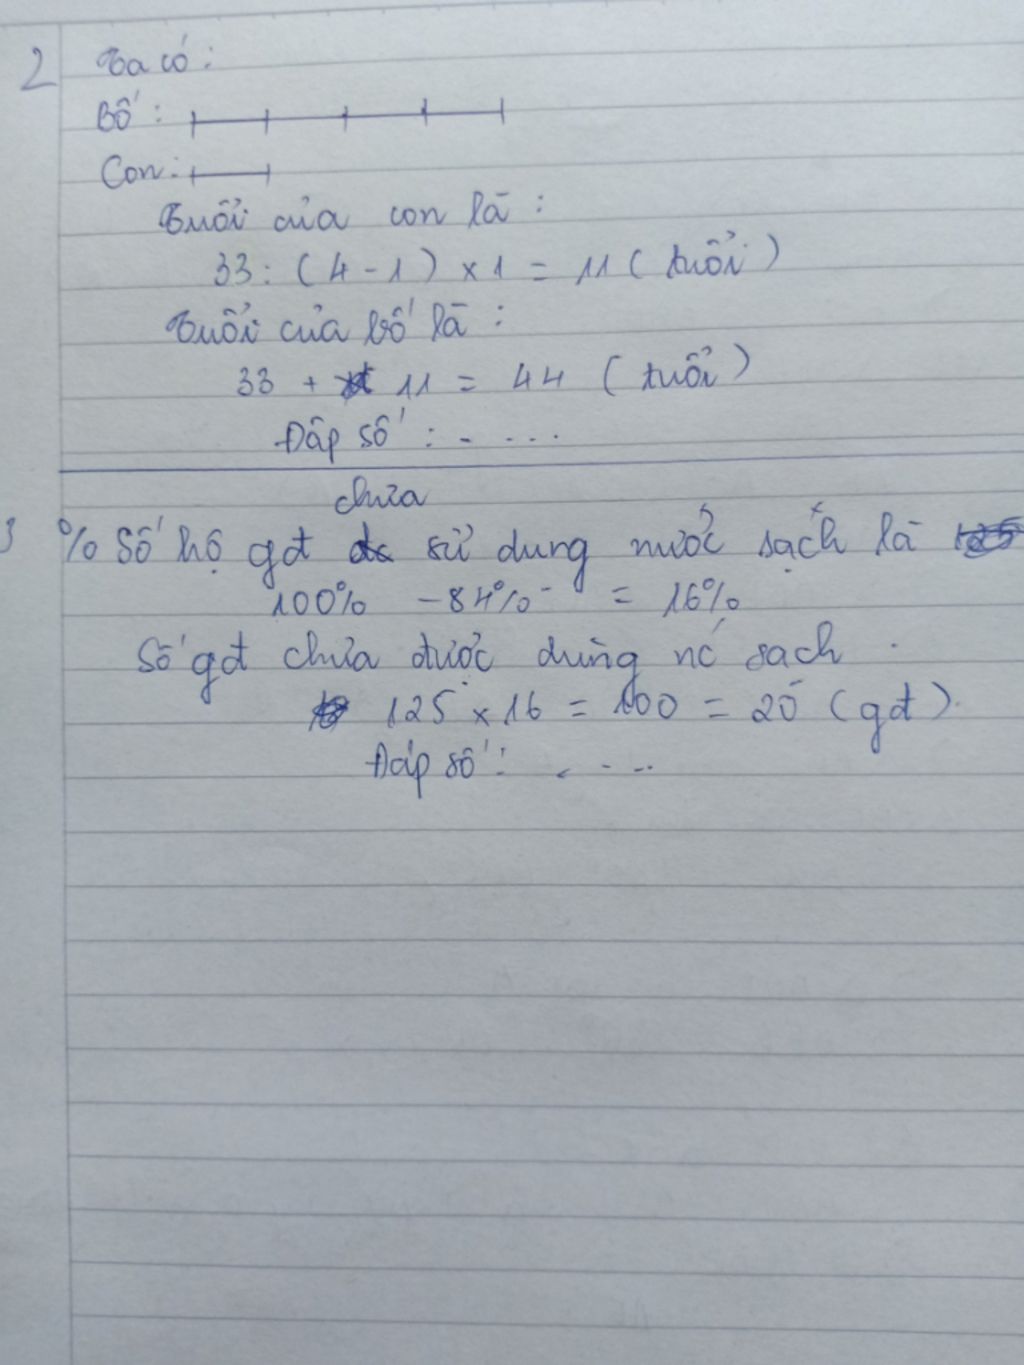 2 Ta có:
Bố:
Con:
Tuổi của con là:
33: (4-1) x 1 = 11 (tuổi)
Tuổi của bố là:
33 + 11 = 44 (tuổi)
Đáp số: - ...
chưa
3 % Số hộ gđ sử dung nước sạch là
100% - 84% = 16%
Số gđ chưa được dùng nc sạch.
125 x 16 = 100 = 20 (gđ).
Đáp số: . - ...